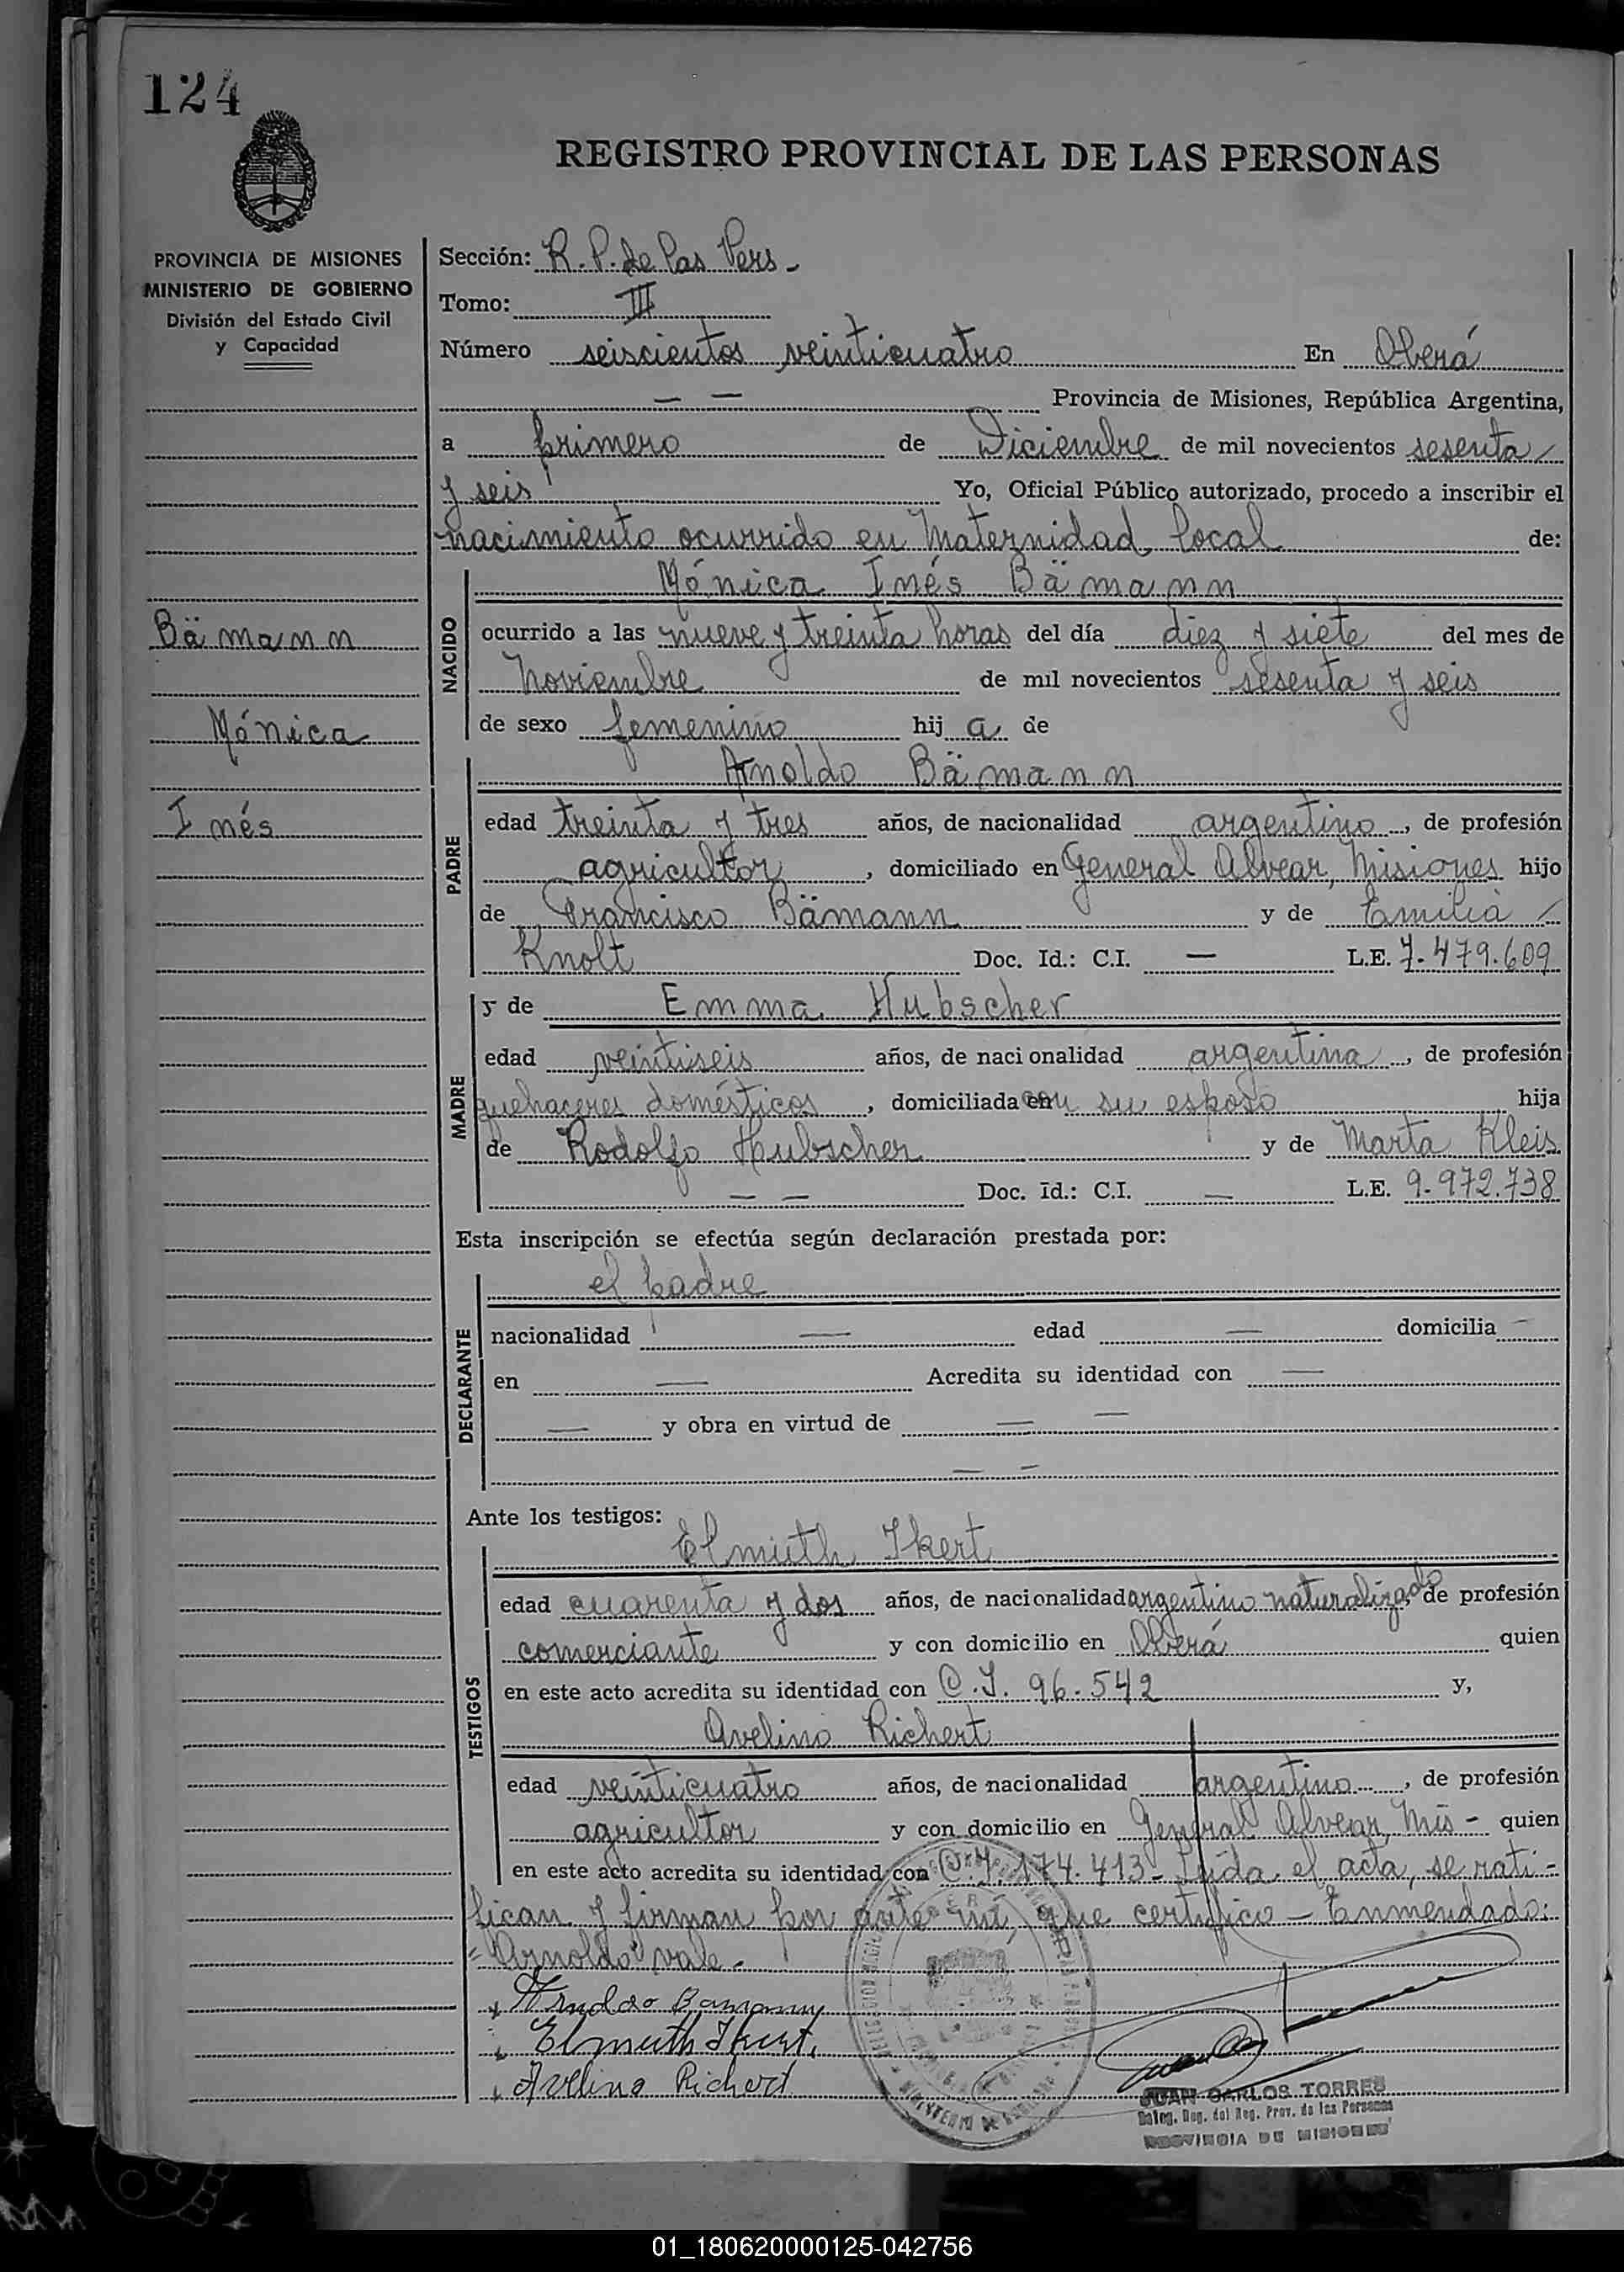 124
REGISTRO PROVINCIAL DE LAS PERSONAS
PROVINCIA DE MISIONES
MINISTERIO DE GOBIERNO
División del Estado Civil
y Capacidad
Bämann
Mónica
Inés
Sección: R. P. de las Pers -
Tomo: III
Número seiscientos veinticuatro En Oberá
— — Provincia de Misiones, República Argentina,
a primero de Diciembre de mil novecientos sesenta
y seis Yo, Oficial Público autorizado, procedo a inscribir el
nacimiento ocurrido en Maternidad Local de:
NACIDO
Mónica Inés Bämann
ocurrido a las nueve y treinta horas del día diez y siete del mes de
Noviembre de mil novecientos sesenta y seis
de sexo femenino hij a de
PADRE
Arnoldo Bämann
edad treinta y tres años, de nacionalidad argentino, de profesión
agricultor, domiciliado en General Alvear, Misiones hijo
de Francisco Bämann y de Emilia
Knolt Doc. Id.: C.I. — L.E. 7.479.609
MADRE
y de Emma Hubscher
edad veintiseis años, de nacionalidad argentina, de profesión
quehaceres domésticos, domiciliada en con su esposo hija
de Rodolfo Hubscher y de Marta Kleis
— — Doc. Id.: C.I. — L.E. 9.972.738
Esta inscripción se efectúa según declaración prestada por:
DECLARANTE
el padre
nacionalidad — edad — domicilia —
en — Acredita su identidad con —
— y obra en virtud de — —
— —
Ante los testigos:
TESTIGOS
Elmuth Ikert
edad cuarenta y dos años, de nacionalidad argentino naturalizado, de profesión
comerciante y con domicilio en Oberá quien
en este acto acredita su identidad con C.I. 96.542 y,
Avelino Richert
edad veinticuatro años, de nacionalidad argentino, de profesión
agricultor y con domicilio en General Alvear, Mis - quien
en este acto acredita su identidad con C.I. 174.413 - Leída el acta, se rati-
fican y firman por ante mí, que certifico - Enmendado:
"Arnoldo" vale.
Arnoldo Bamann
Elmuth Ikert.
Avelino Richert
MINISTERIO DE GOBIERNO
JUAN CARLOS TORRES
Deleg. Reg. del Reg. Prov. de las Personas
PROVINCIA DE MISIONES
01_180620000125-042756